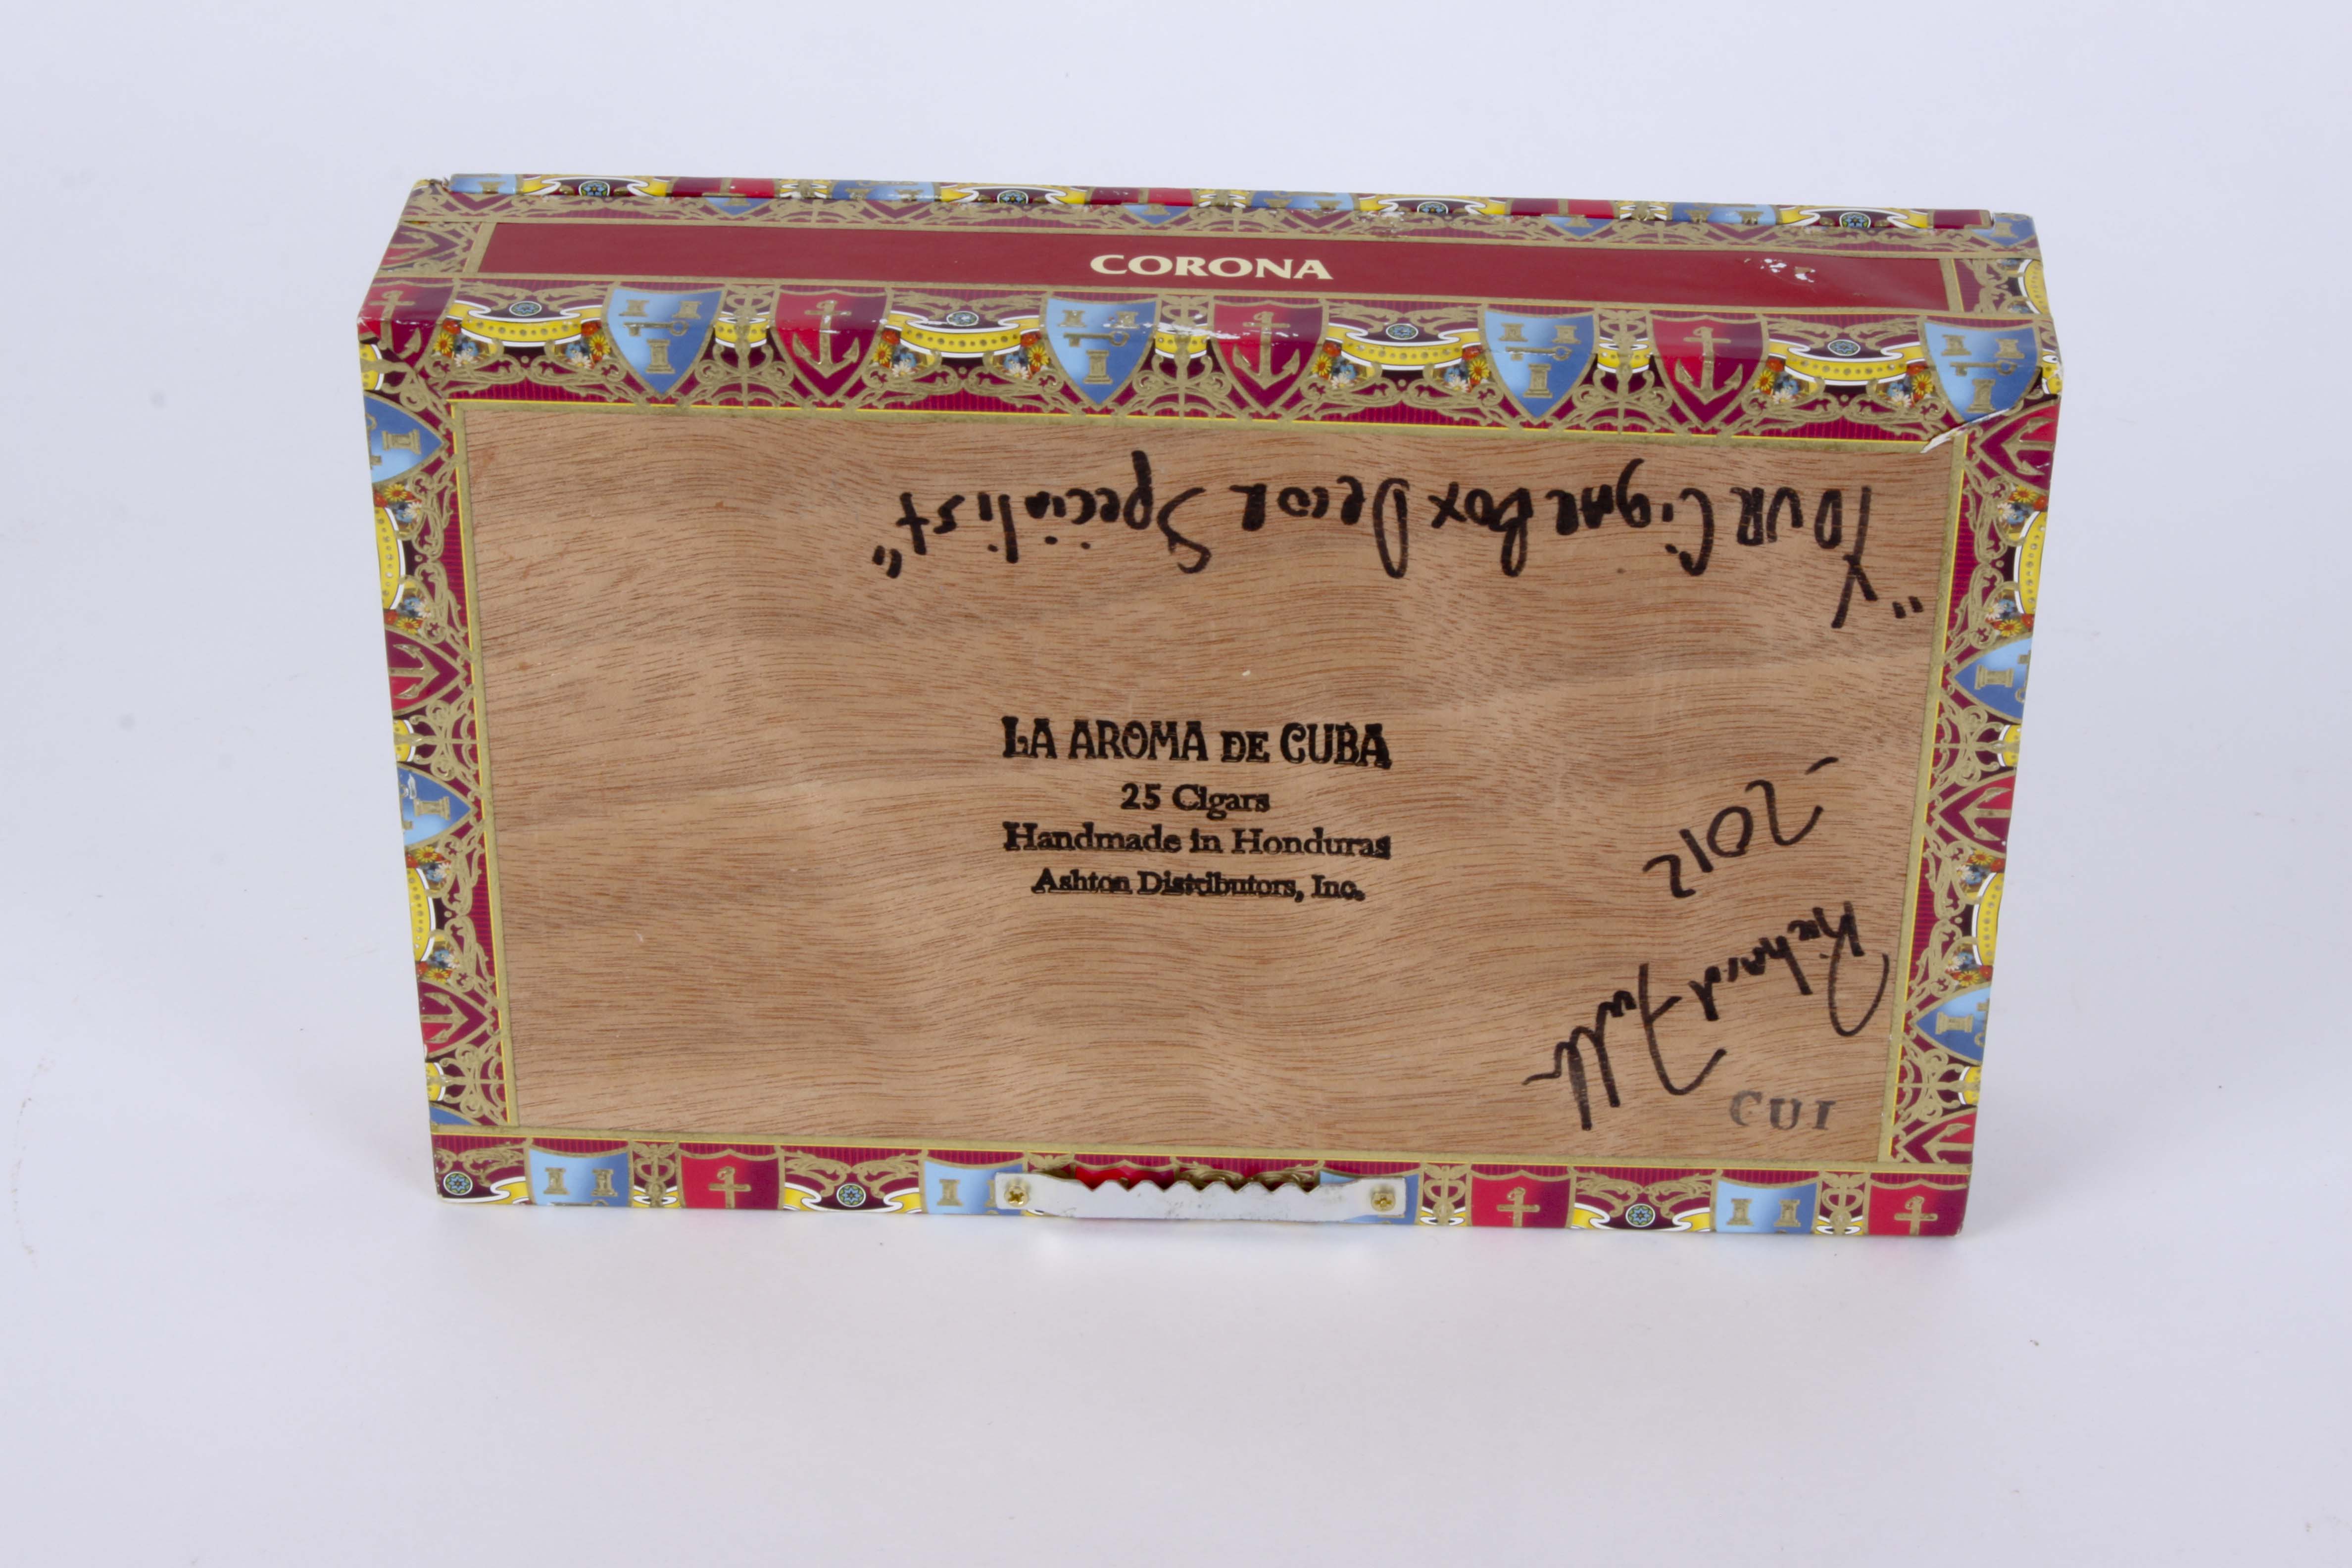 CORONA
LA AROMA DE CUBA
25 Cigars
Handmade in Honduras
Ashton Distributors, Inc.
CUI
"Your Cigar Box Decor Specialist"
Richard Fuller
2012